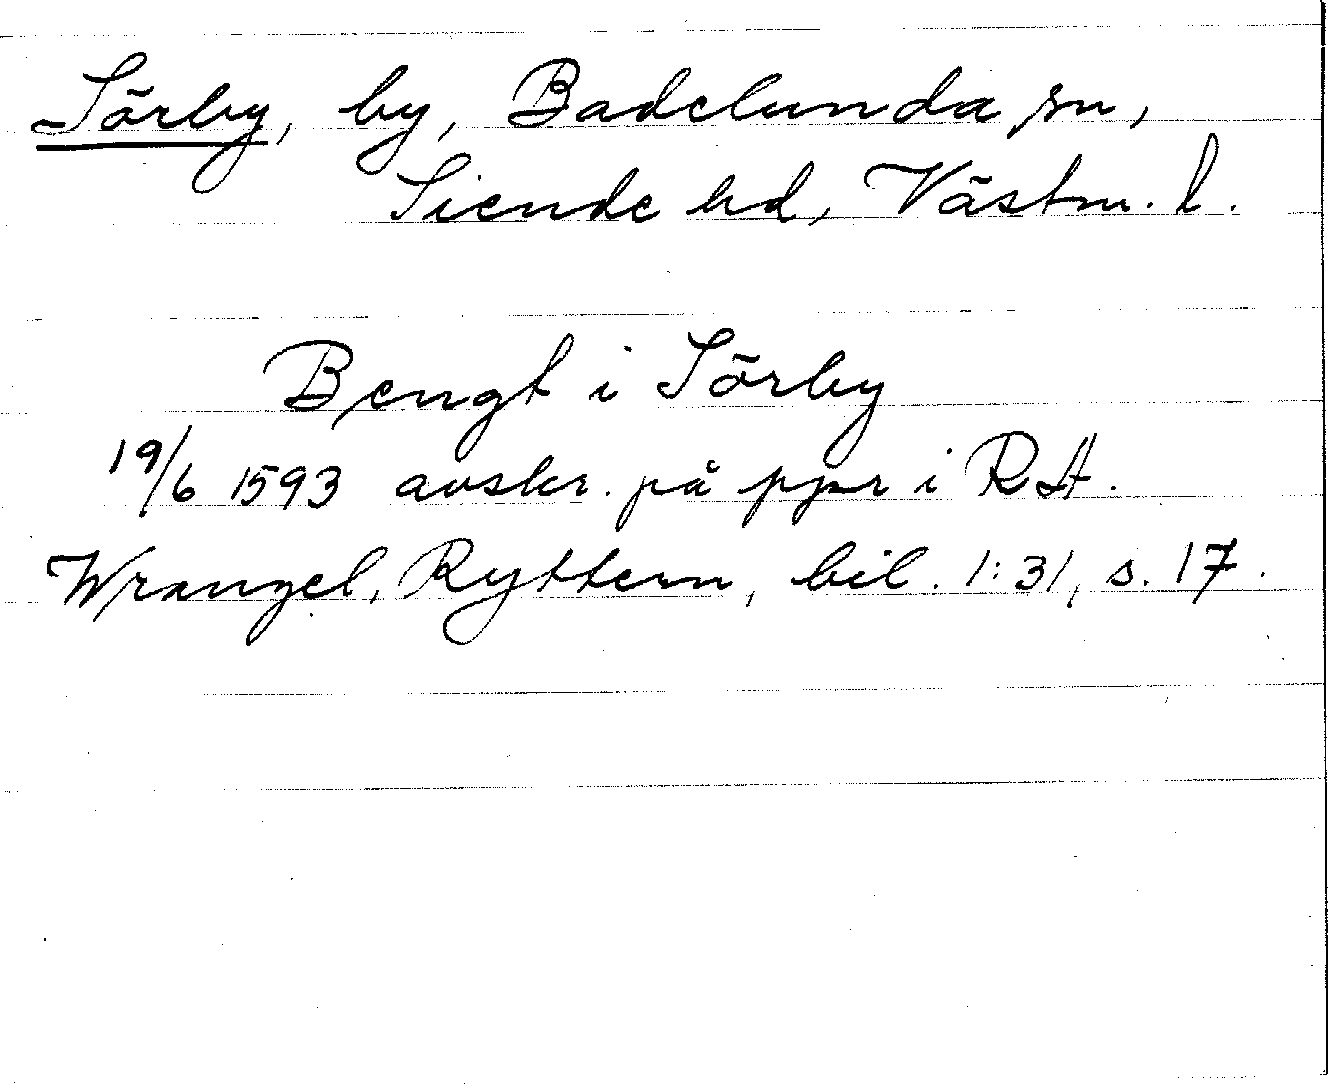 Sörby, by, Badelunda sn,
Siende hd, Västm. l.
Bengt i Sörby
19/6 1593 avskr. på ppr i RA.
Wrangel, Ryttern, bil. 1:31, s. 17.